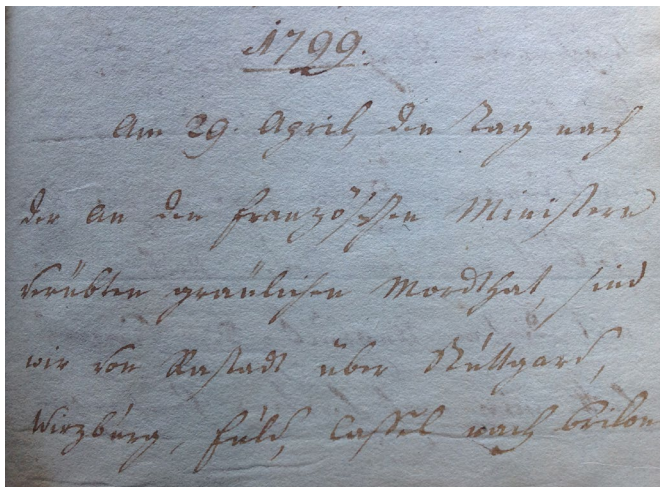 1799.
Am 29. April, den Tag nach
der an den französischen Ministern
verübten graülichen Mordthat, sind
wir von Rastadt über Stuttgard,
Wirzburg, Fuld, Cassel nach Brilon